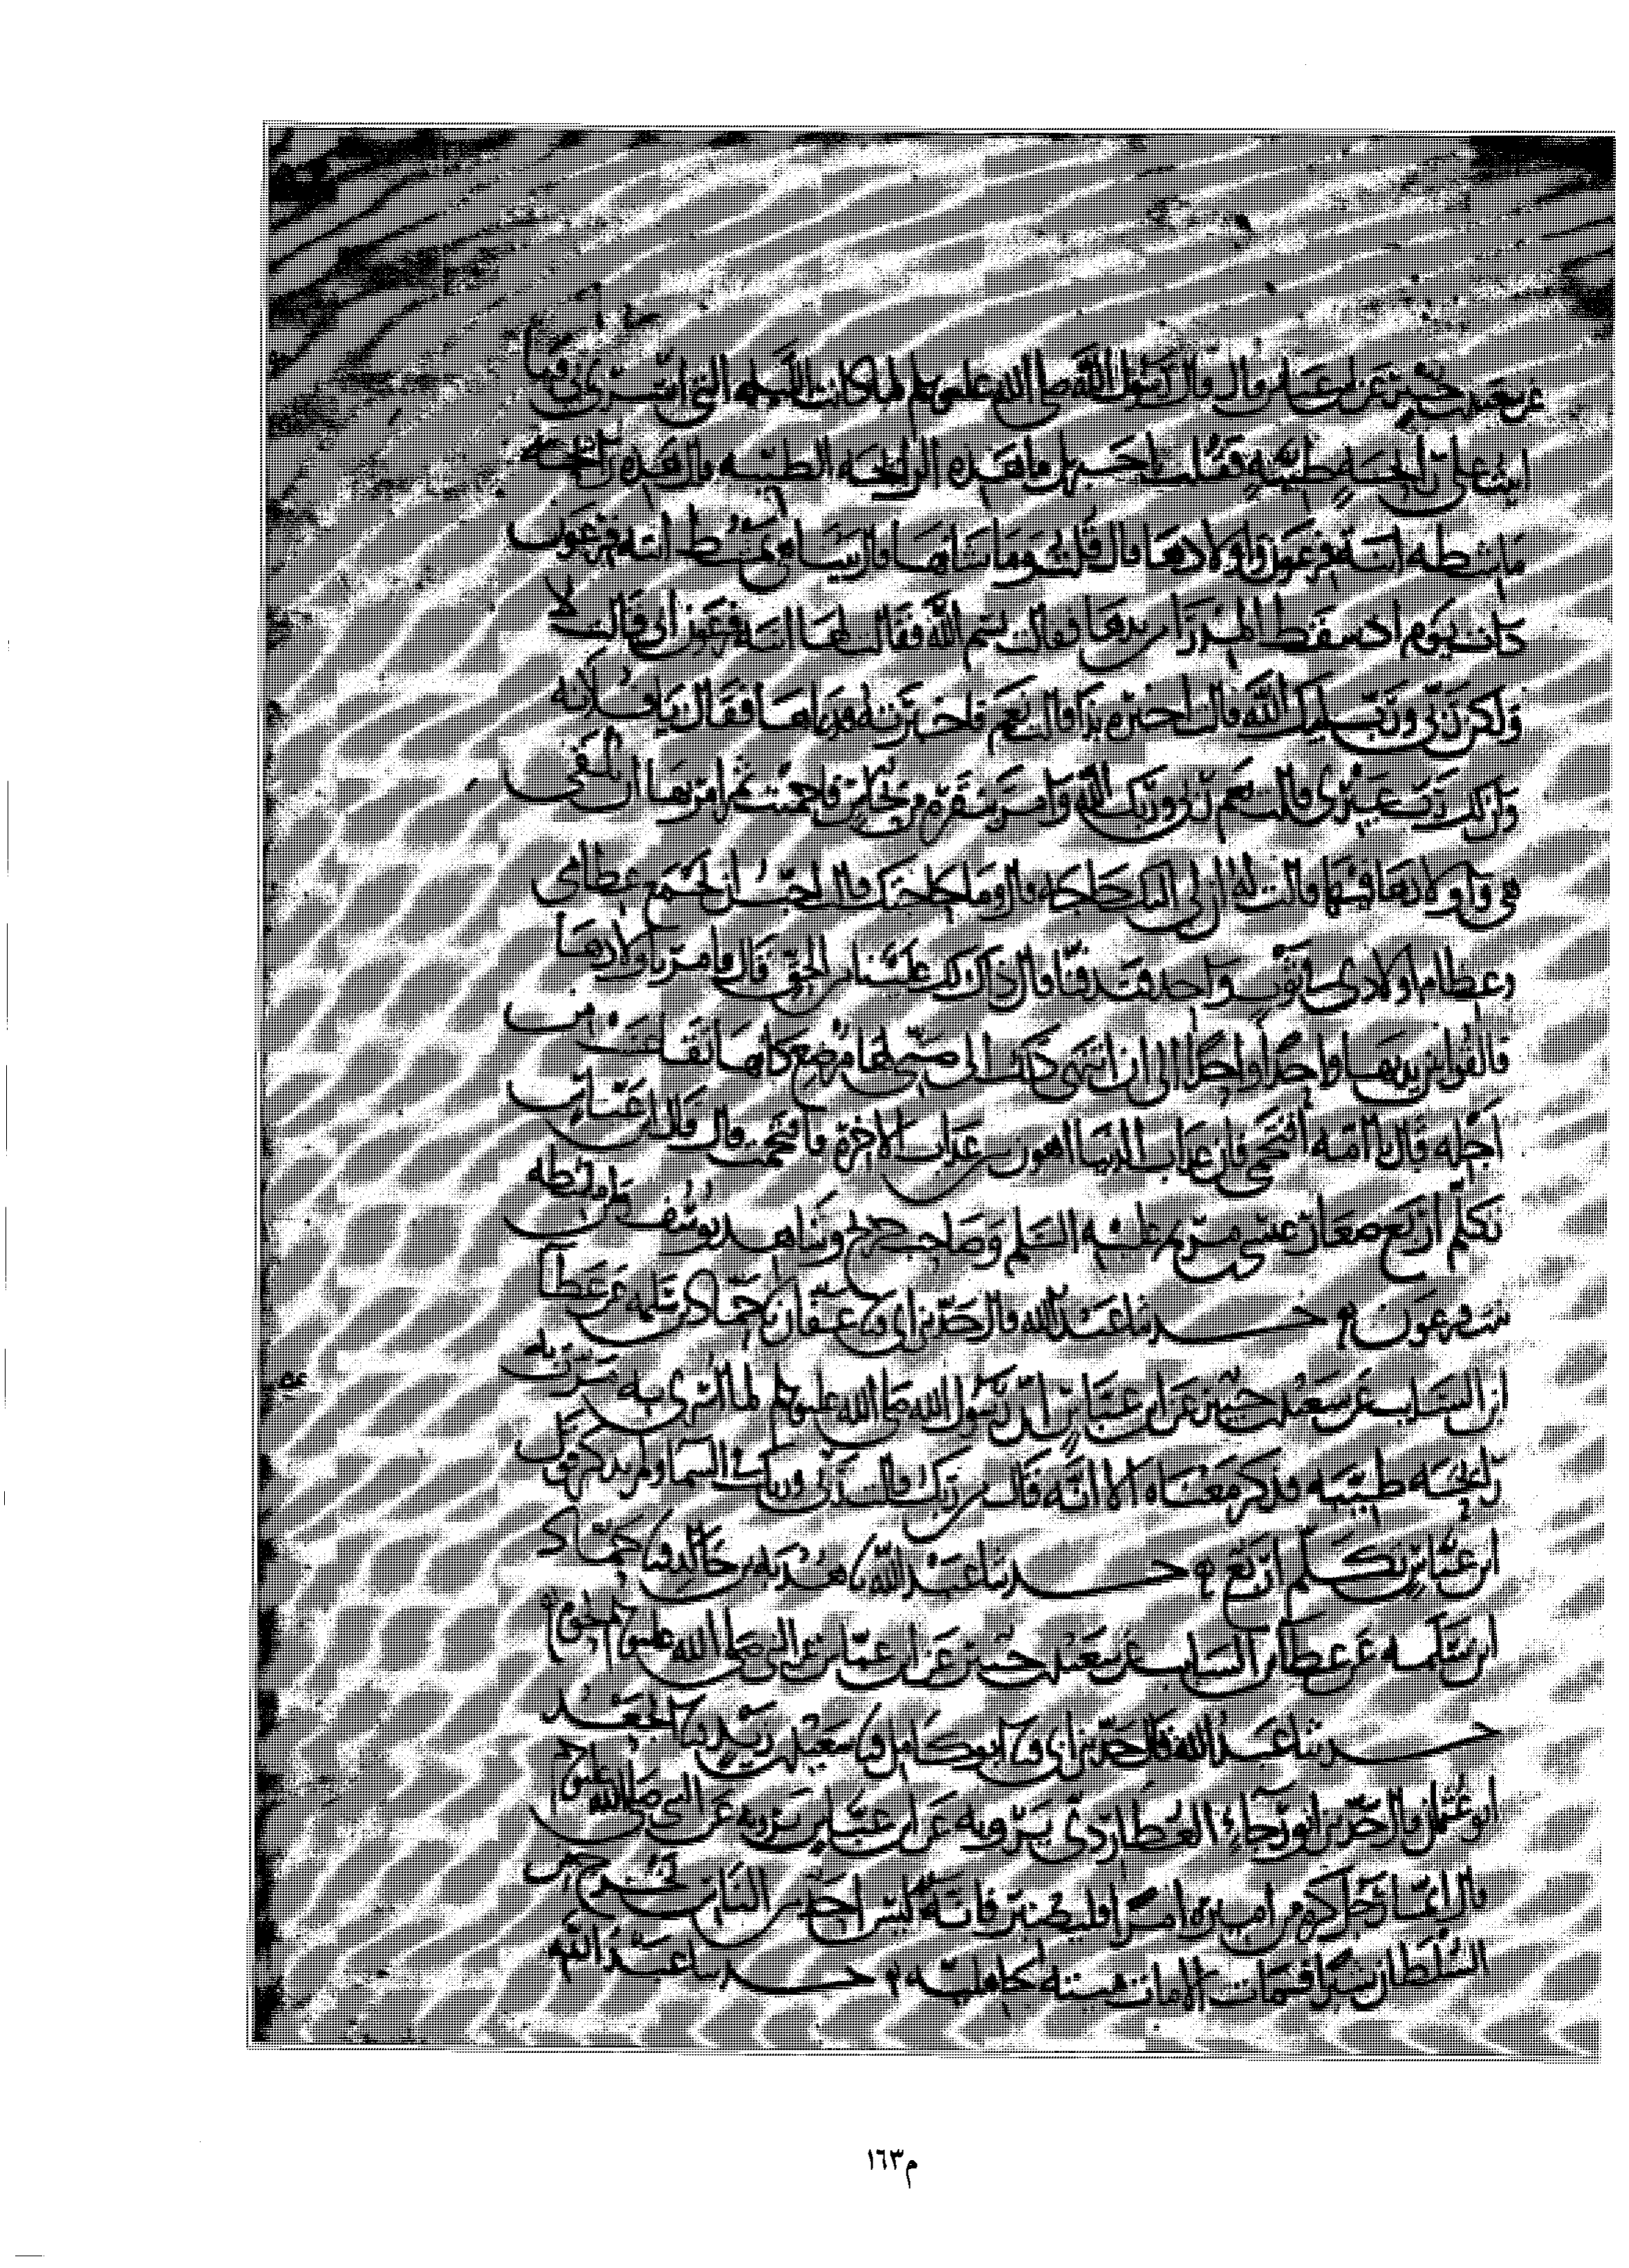 عن سعيد بن جبير عن ابن عباس قال قال رسول الله صلى الله عليه وسلم لما كانت الليلة التي اسري بي فيها
اتت علي رائحة طيبة فقلت يا جبريل ما هذه الرائحة الطيبة قال هذه رائحة
ماشطة ابنة فرعون واولادها قال قلت وما شانها قال بينا هي تمشط ابنة فرعون
ذات يوم اذ سقط المدرا من يدها فقالت بسم الله فقالت لها ابنة فرعون ابي قالت لا
ولكن ربي ورب ابيك الله قالت اخبره بذا قالت نعم فاخبرته فدعاها فقال يا فلانة
وان لك ربا غيري قالت نعم ربي وربك الله وامر بنقرة من نحاس فاحميت ثم امر بها ان تلقى
هي واولادها فيها قالت له ان لي اليك حاجة قال وما حاجتك قالت احب ان تجمع عظامي
وعظام اولادي في ثوب واحد وتدفننا قال ذلك لك علينا من الحق قال فامر باولادها
فالقوا بين يديها واحدا واحدا الى ان انتهى ذلك الى صبي لها مرضع كانها تقاعست من
اجله قال يا امه اقتحمي فان عذاب الدنيا اهون من عذاب الاخرة فاقتحمت قال قال ابن عباس
تكلم اربع صغار عيسى بن مريم عليه السلم وصاحب جريج وشاهد يوسف وابن ماشطة
بنت فرعون حدثنا عبد الله قال حدثني ابي ثنا عفان ثنا حماد بن سلمة عن عطا
ابن السايب عن سعيد بن جبير عن ابن عباس ان رسول الله صلى الله عليه وسلم لما اسري به مرت به
رائحة طيبة فذكر معناه الا انه قال من ربك قالت ربي وربك من في السما ولم يذكر قول
ابن عباس تكلم اربع حدثنا عبد الله ثنا هدبة بن خالد ثنا حماد
ابن سلمة عن عطا بن السايب عن سعيد بن جبير عن ابن عباس عن النبي صلى الله عليه وسلم نحوه
حدثنا عبد الله قال حدثني ابي ثنا ابو كامل ثنا سعيد بن زيد ثنا الجعد
ابو عثمان قال حدثني ابو رجاء العطاردي يرويه عن ابن عباس يرويه عن النبي صلى الله عليه وسلم
قال ايما رجل كره من اميره امرا فليصبر فانه ليس احد من الناس يخرج من
السلطان شبرا فمات الا مات ميتة جاهلية حدثنا عبد الله
م١٦٣